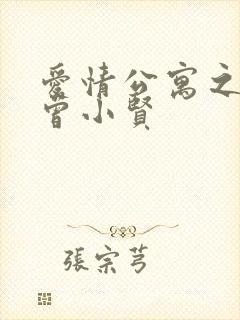 愛情公寓之
曾小賢
張宗芎